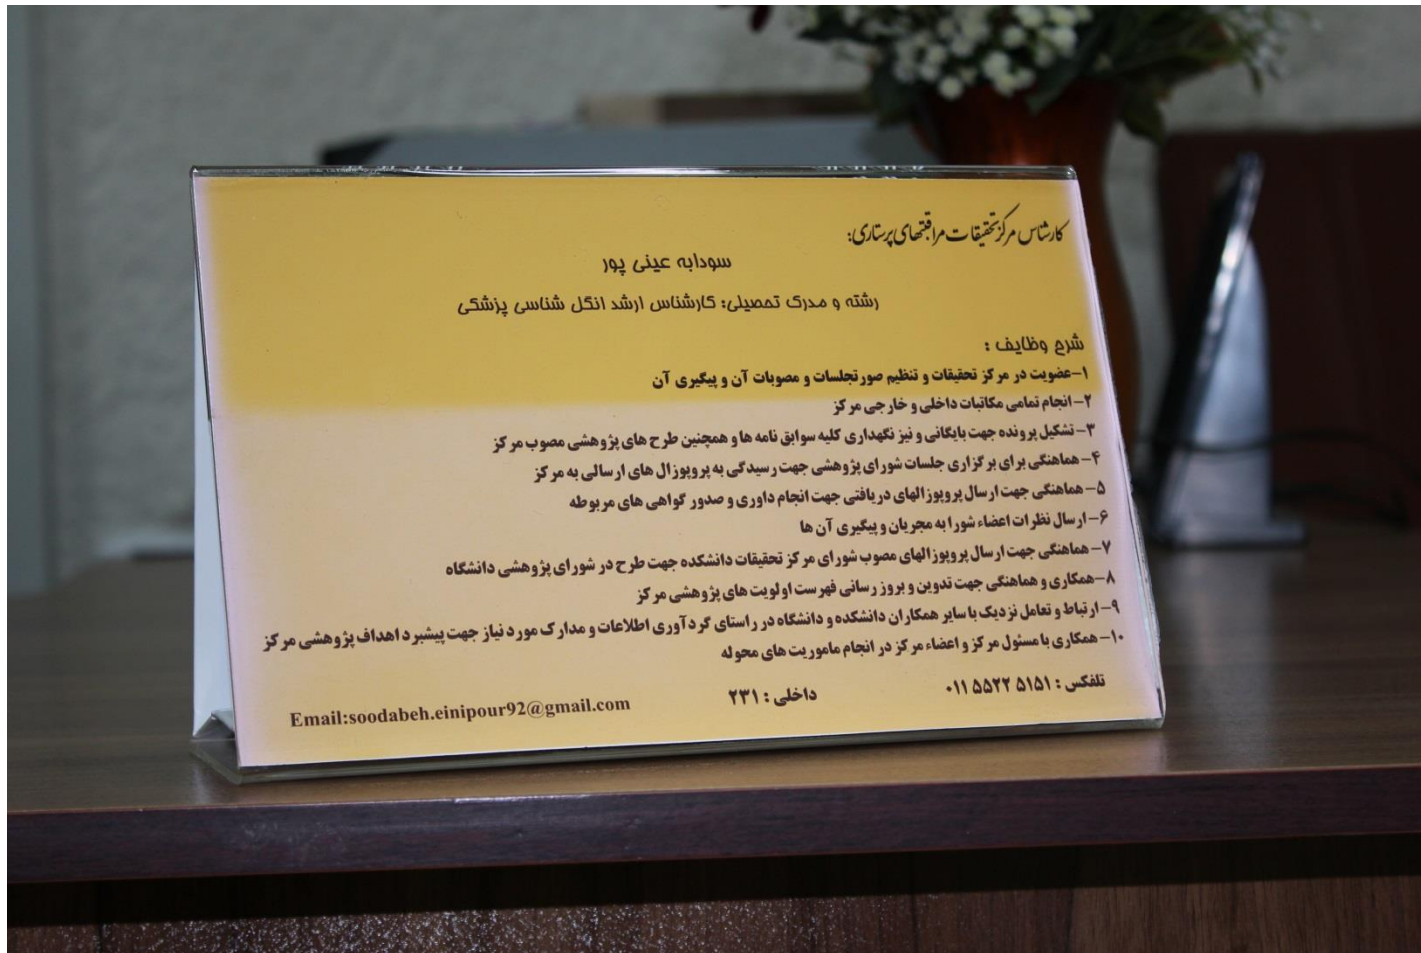 کارشناس مرکز تحقیقات مراقبتهای پرستاری:
سودابه عینی پور
رشته و مدرک تحصیلی: کارشناس ارشد انگل شناسی پزشکی
شرح وظایف :
۱-عضویت در مرکز تحقیقات و تنظیم صورتجلسات و مصوبات آن و پیگیری آن
۲- انجام تمامی مکاتبات داخلی و خارجی مرکز
۳- تشکیل پرونده جهت بایگانی و نیز نگهداری کلیه سوابق نامه ها و همچنین طرح های پژوهشی مصوب مرکز
۴- هماهنگی برای برگزاری جلسات شورای پژوهشی جهت رسیدگی به پروپوزال های ارسالی به مرکز
۵- هماهنگی جهت ارسال پروپوزالهای دریافتی جهت انجام داوری و صدور گواهی های مربوطه
۶- ارسال نظرات اعضاء شورا به مجریان و پیگیری آن ها
۷- هماهنگی جهت ارسال پروپوزالهای مصوب شورای مرکز تحقیقات دانشکده جهت طرح در شورای پژوهشی دانشگاه
۸-همکاری و هماهنگی جهت تدوین و بروز رسانی فهرست اولویت های پژوهشی مرکز
۹- ارتباط و تعامل نزدیک با سایر همکاران دانشکده و دانشگاه در راستای گردآوری اطلاعات و مدارک مورد نیاز جهت پیشبرد اهداف پژوهشی مرکز
۱۰- همکاری با مسئول مرکز و اعضاء مرکز در انجام ماموریت های محوله
تلفکس : ۰۱۱ ۵۵۲۲ ۵۱۵۱ داخلی : ۲۳۱ Email:soodabeh.einipour92@gmail.com